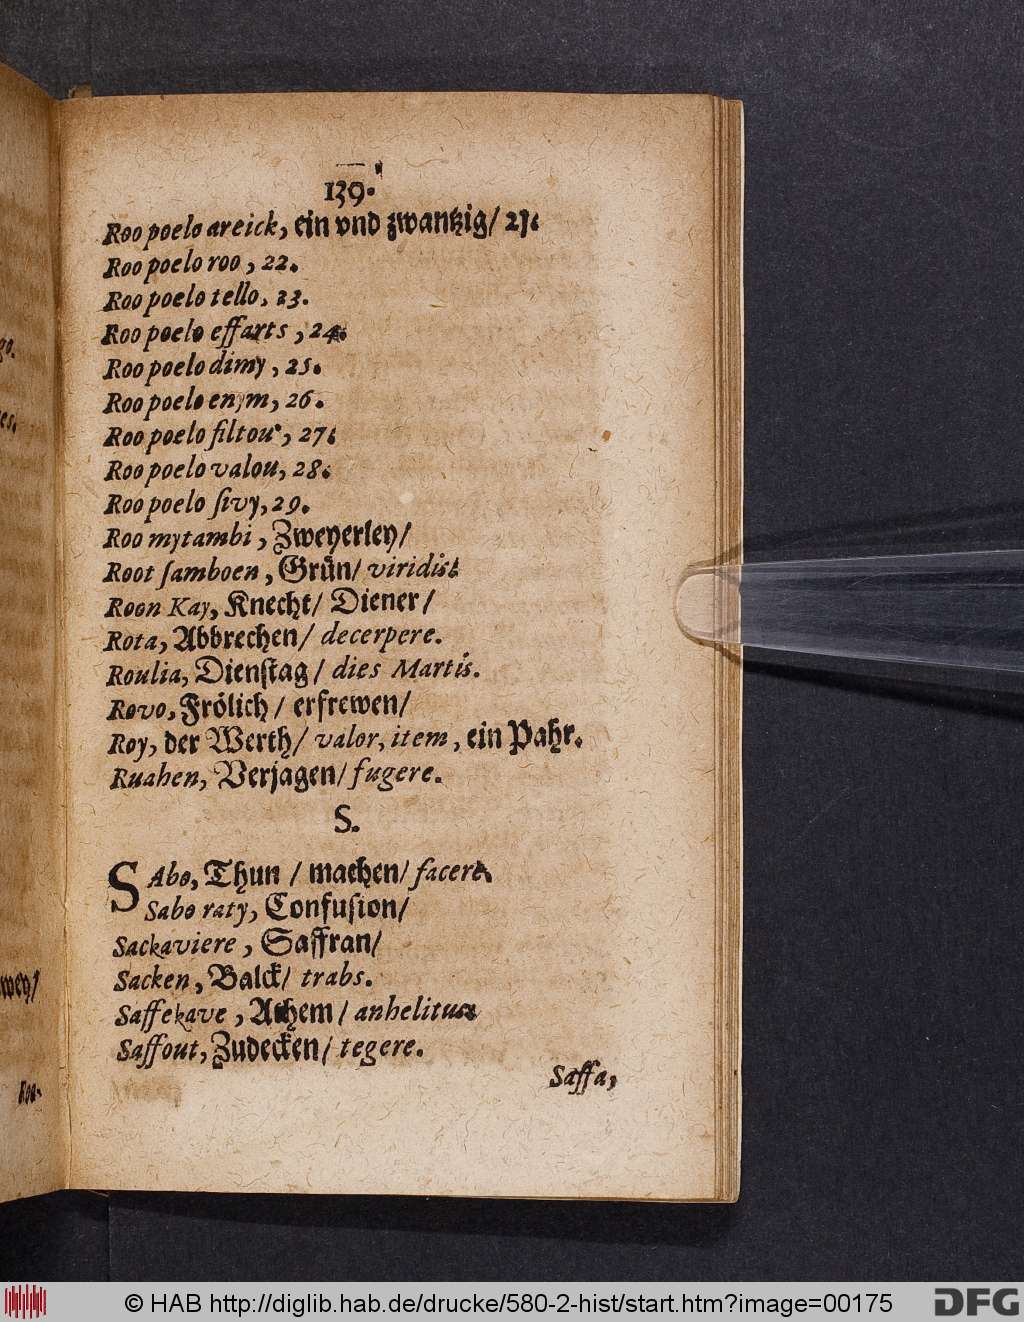 139.
Roo poelo areick, ein vnd zwantzig/ 21.
Roo poelo roo, 22.
Roo poelo tello, 23.
Roo poelo effarts, 24.
Roo poelo dimy, 25.
Roo poelo enym, 26.
Roo poelo fiſtou, 27.
Roo poelo valou, 28.
Roo poelo ſivy, 29.
Roo mytambi, Zweyerley/
Root ſamboen, Grün/ viridis.
Roon Kay, Knecht/ Diener/
Rota, Abbrechen/ decerpere.
Roulia, Dienſtag/ dies Martis.
Rovo, Frölich/ erfrewen/
Roy, der Werth/ valor, item, ein Pahr.
Ruahen, Verjagen/ fugere.
S.
SAbo, Thun / machen/ facere.
Sabo raty, Confuſion/
Sackaviere, Saffran/
Sacken, Balck/ trabs.
Saffekave, Athem / anhelitus
Saffout, Zudecken/ tegere.
Saffa,
go.
es.
wey/
Roo-
© HAB http://diglib.hab.de/drucke/580-2-hist/start.htm?image=00175
DFG